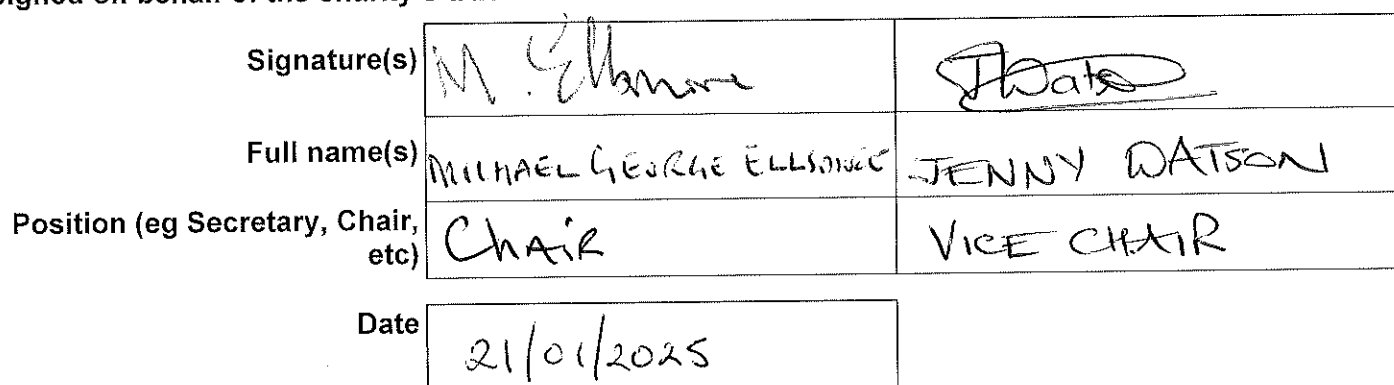 Signature(s) M. Ellsmore JWatso
Full name(s) MICHAEL GEORGE JENNY WATSON
Position (eg Secretary, Chair,
etc) ChAiR VICE CHAIR
Date 21/01/2025